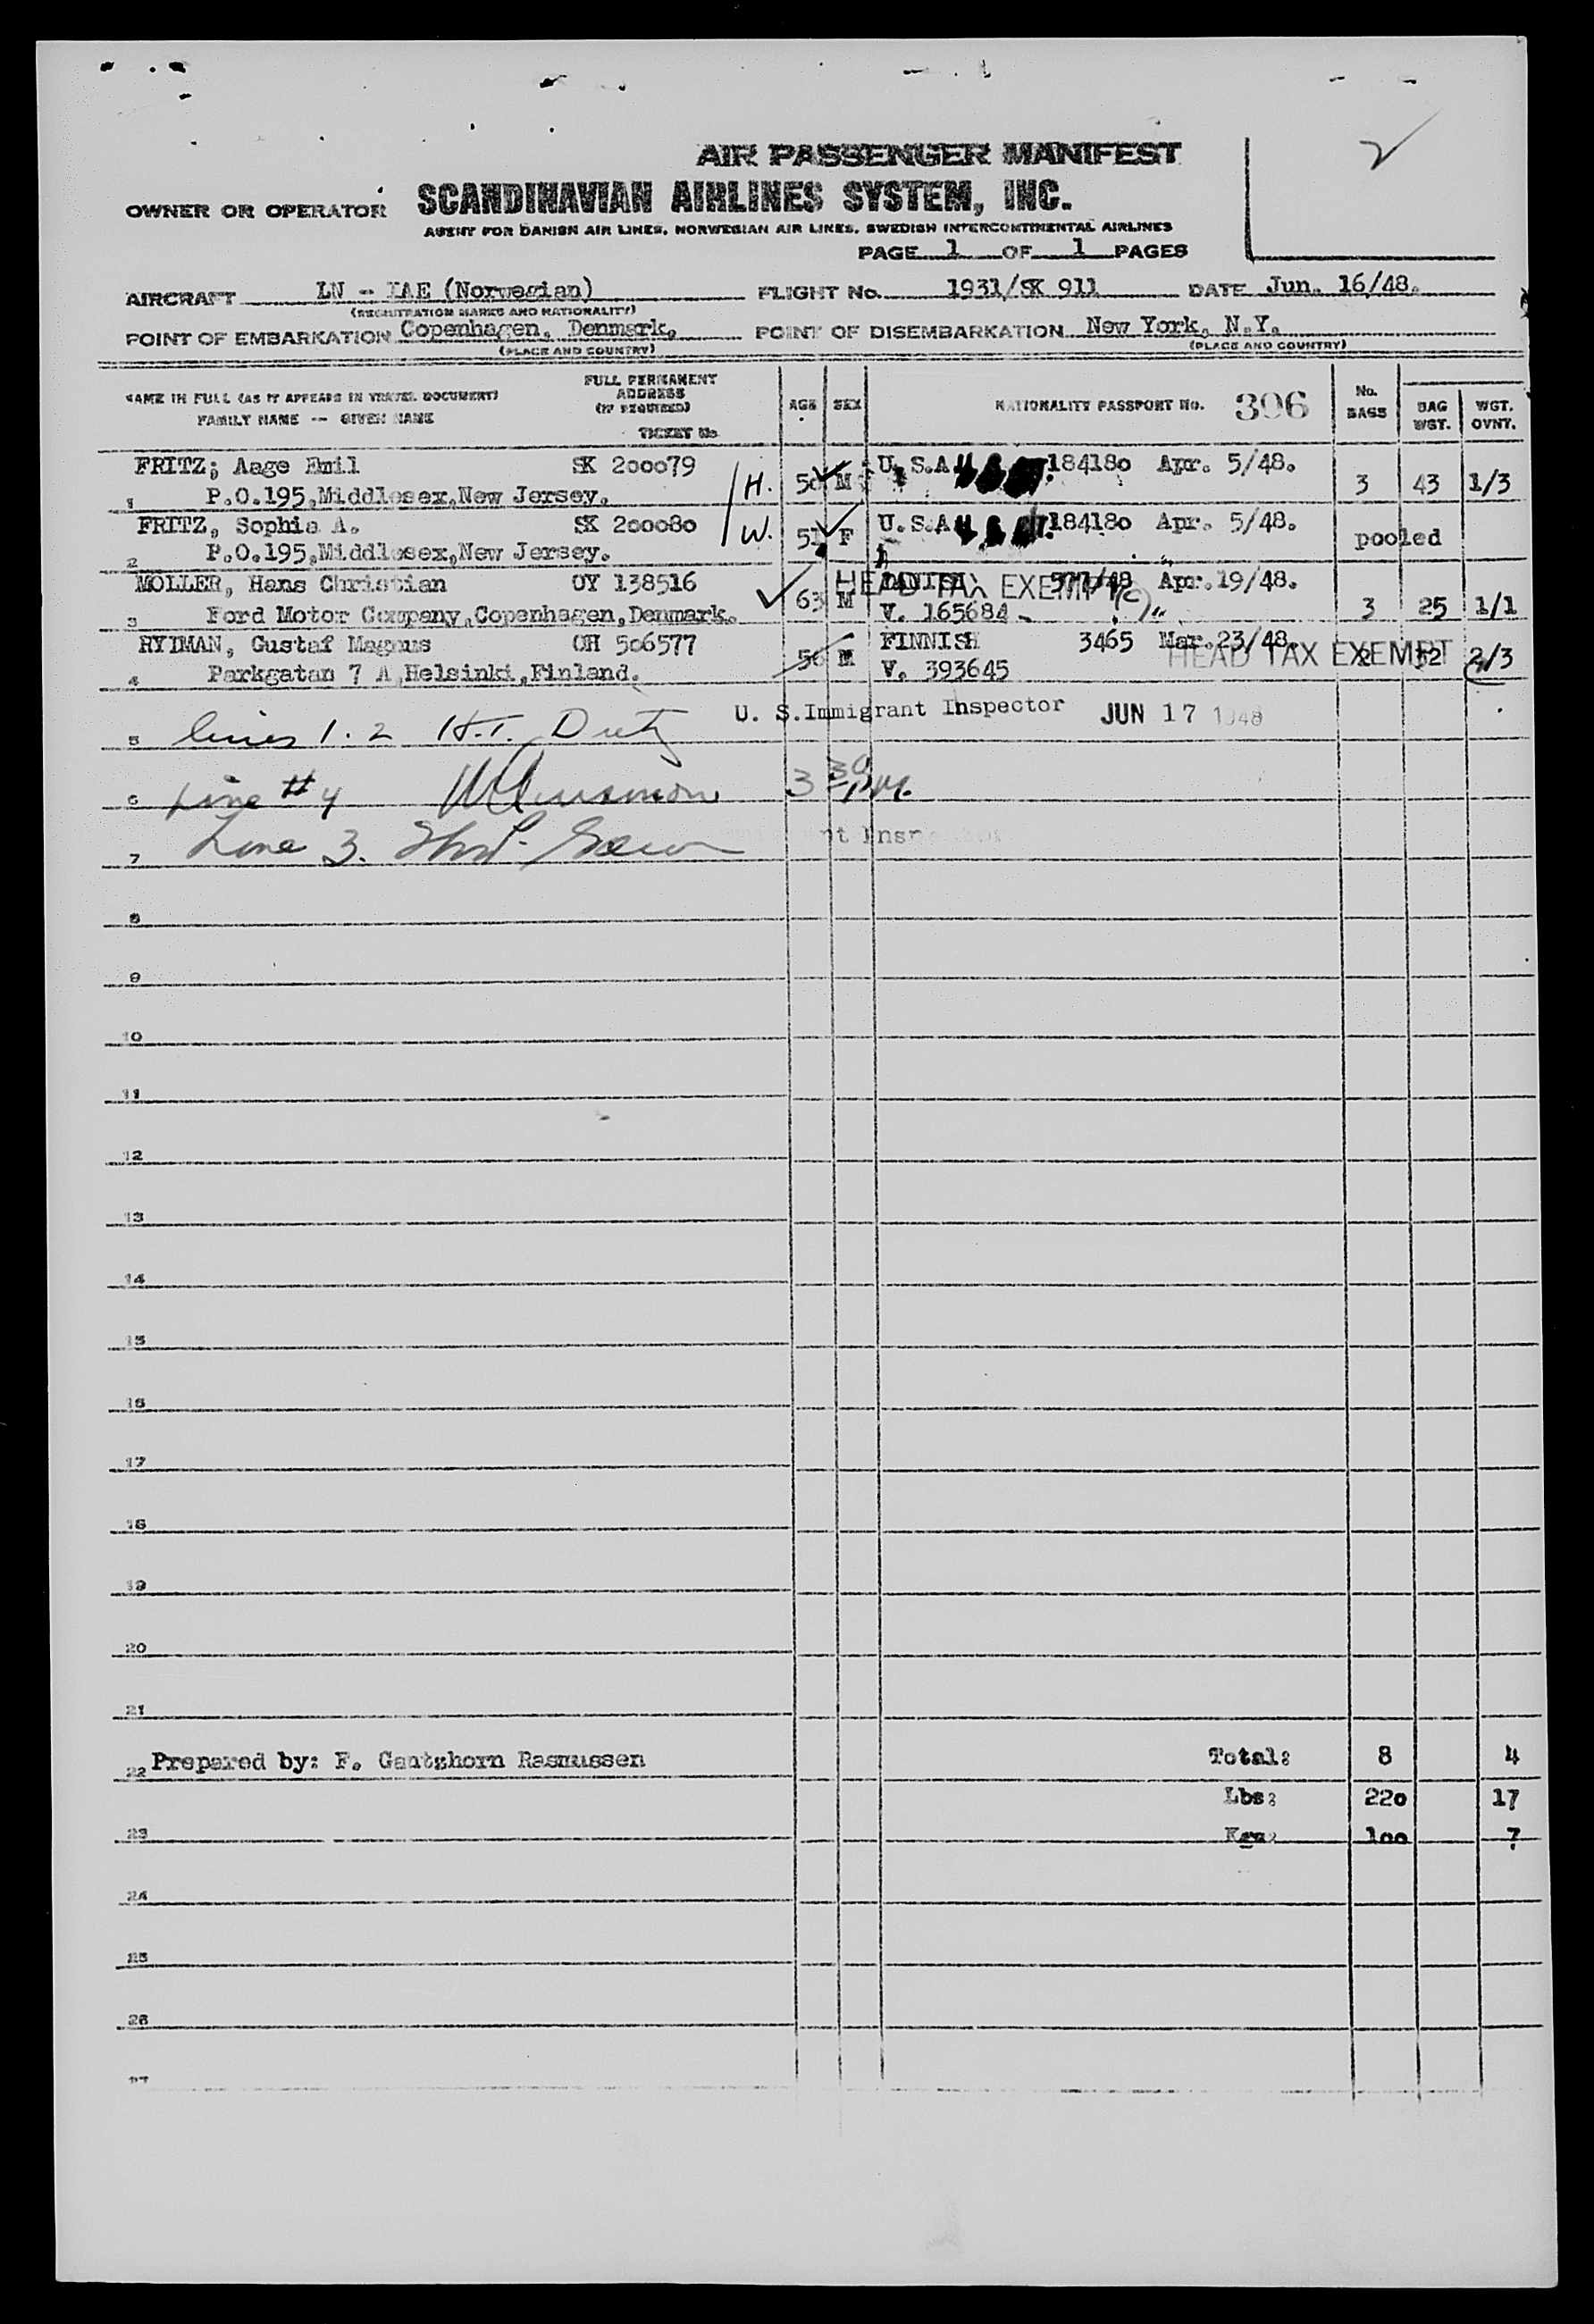 2
AIR PASSENGER MANIFEST
OWNER OR OPERATOR SCANDINAVIAN AIRLINES SYSTEM, INC.
AGENT FOR DANISH AIR LINES, NORWEGIAN AIR LINES, SWEDISH INTERCONTINENTAL AIRLINES
PAGE 1 OF 1 PAGES
AIRCRAFT LN - IAE (Norwegian) FLIGHT No. 1931/SK 911 DATE Jun. 16/48.
(REGISTRATION MARKS AND NATIONALITY)
POINT OF EMBARKATION Copenhagen, Denmark, POINT OF DISEMBARKATION New York, N.Y.
(PLACE AND COUNTRY) (PLACE AND COUNTRY)
NAME IN FULL (AS IT APPEARS IN TRAVEL DOCUMENT) FULL PERMANENT ADDRESS (IF REQUIRED) AGE SEX NATIONALITY PASSPORT No. 396 No. BAGS BAG WGT. WGT. OVNT.
FAMILY NAME -- GIVEN NAME TICKET No
FRITZ; Aage Emil SK 200079 H. 50 M U.S.A 184180 Apr. 5/48. 3 43 1/3
1 P.O.195,Middlesex,New Jersey.
FRITZ, Sophie A. SK 200080 W. 51 F U.S.A 184180 Apr. 5/48. pooled
2 P.O.195,Middlesex,New Jersey.
MOLLER, Hans Christian OY 138516 63 M DANISH 577/48 Apr.19/48. 3 25 1/1
HEAD TAX EXEMPT
3 Ford Motor Company,Copenhagen,Denmark. V. 165684
RYDMAN, Gustaf Magnus OH 506577 56 M FINNISH 3465 Mar.23/48. 2 32 2/3
HEAD TAX EXEMPT
4 Parkgatan 7 A,Helsinki,Finland. V. 393645
U. S.Immigrant Inspector JUN 17 1948
5 lines 1. 2 H.T. Dietz
6 Line #4 3 30 P.M.
7 Line 3.
8
9
10
11
12
13
14
15
16
17
18
19
20
21
22 Prepared by: F. Gautzhorn Rasmussen Total: 8 4
Lbs: 220 17
23 Kgs: 100 7
24
25
26
27